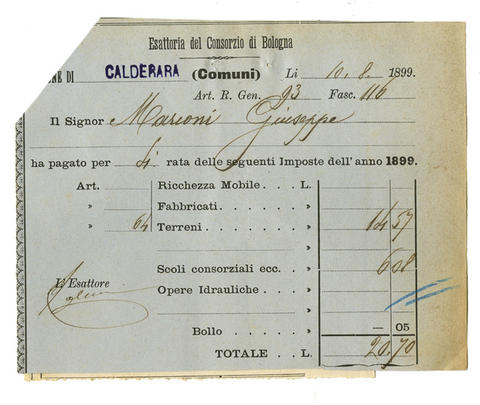 Esattoria del Consorzio di Bologna
NE DI CALDERARA (Comuni) Li 10.8. 1899.
Art. R. Gen. 93 Fasc. 116
Il Signor Marconi Giuseppe
ha pagato per rata delle seguenti Imposte dell'anno 1899.
Art. Ricchezza Mobile . . . L.
» Fabbricati . . . . . . . »
» 64 Terreni . . . . . . . . » 14 57
»
Scoli consorziali ecc. . . . » 6 08
L'Esattore Opere Idrauliche . . . . »
»
Bollo » — 05
TOTALE . . L. 20.70